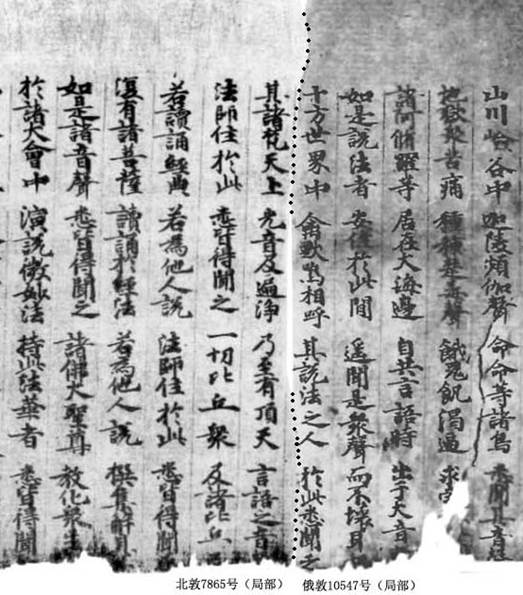 山川嶮谷中 迦陵頻伽聲 命命等諸鳥 悉聞其音聲
地獄眾苦痛 種種楚毒聲 餓鬼飢渴逼 求
諸阿脩羅等 居在大海邊 自共言語時 出于大音
如是說法者 安住於此間 遙聞是眾聲 而不壞耳
十方世界中 禽獸鳴相呼 其說法之人 於此悉聞之
其諸梵天上 光音及遍淨 乃至有頂天 言語之音
法師住於此 悉皆得聞之 一切比丘眾 及諸比丘
若讀誦經典 若為他人說 法師住於此 悉皆得聞
復有諸菩薩 讀誦於經法 若為他人說 撰集解其
如是諸音聲 悉皆得聞之 諸佛大聖尊 教化眾生
於諸大會中 演說微妙法 持此法華者 悉皆得聞
北敦7865号（局部） 俄敦10547号（局部）